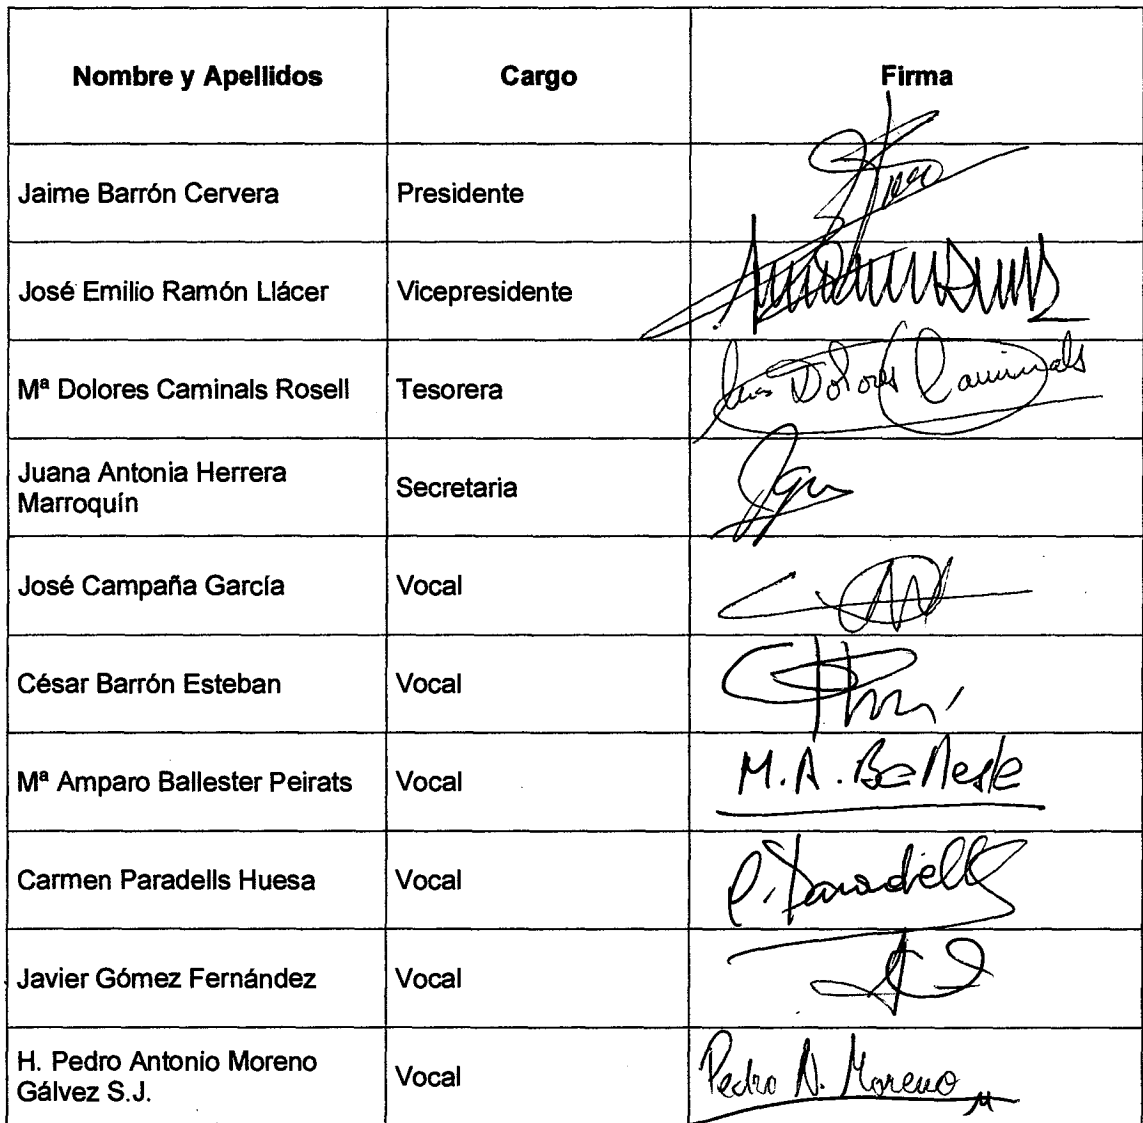 Nombre y Apellidos Cargo Firma
Jaime Barrón Cervera Presidente
José Emilio Ramón Llácer Vicepresidente
Mª Dolores Caminals Rosell Tesorera Dolores Caminals
Juana Antonia Herrera
Marroquín Secretaria
José Campaña García Vocal
César Barrón Esteban Vocal
Mª Amparo Ballester Peirats Vocal M.A. Balleste
Carmen Paradells Huesa Vocal C. Paradells
Javier Gómez Fernández Vocal
H. Pedro Antonio Moreno
Gálvez S.J. Vocal Pedro A. Moreno